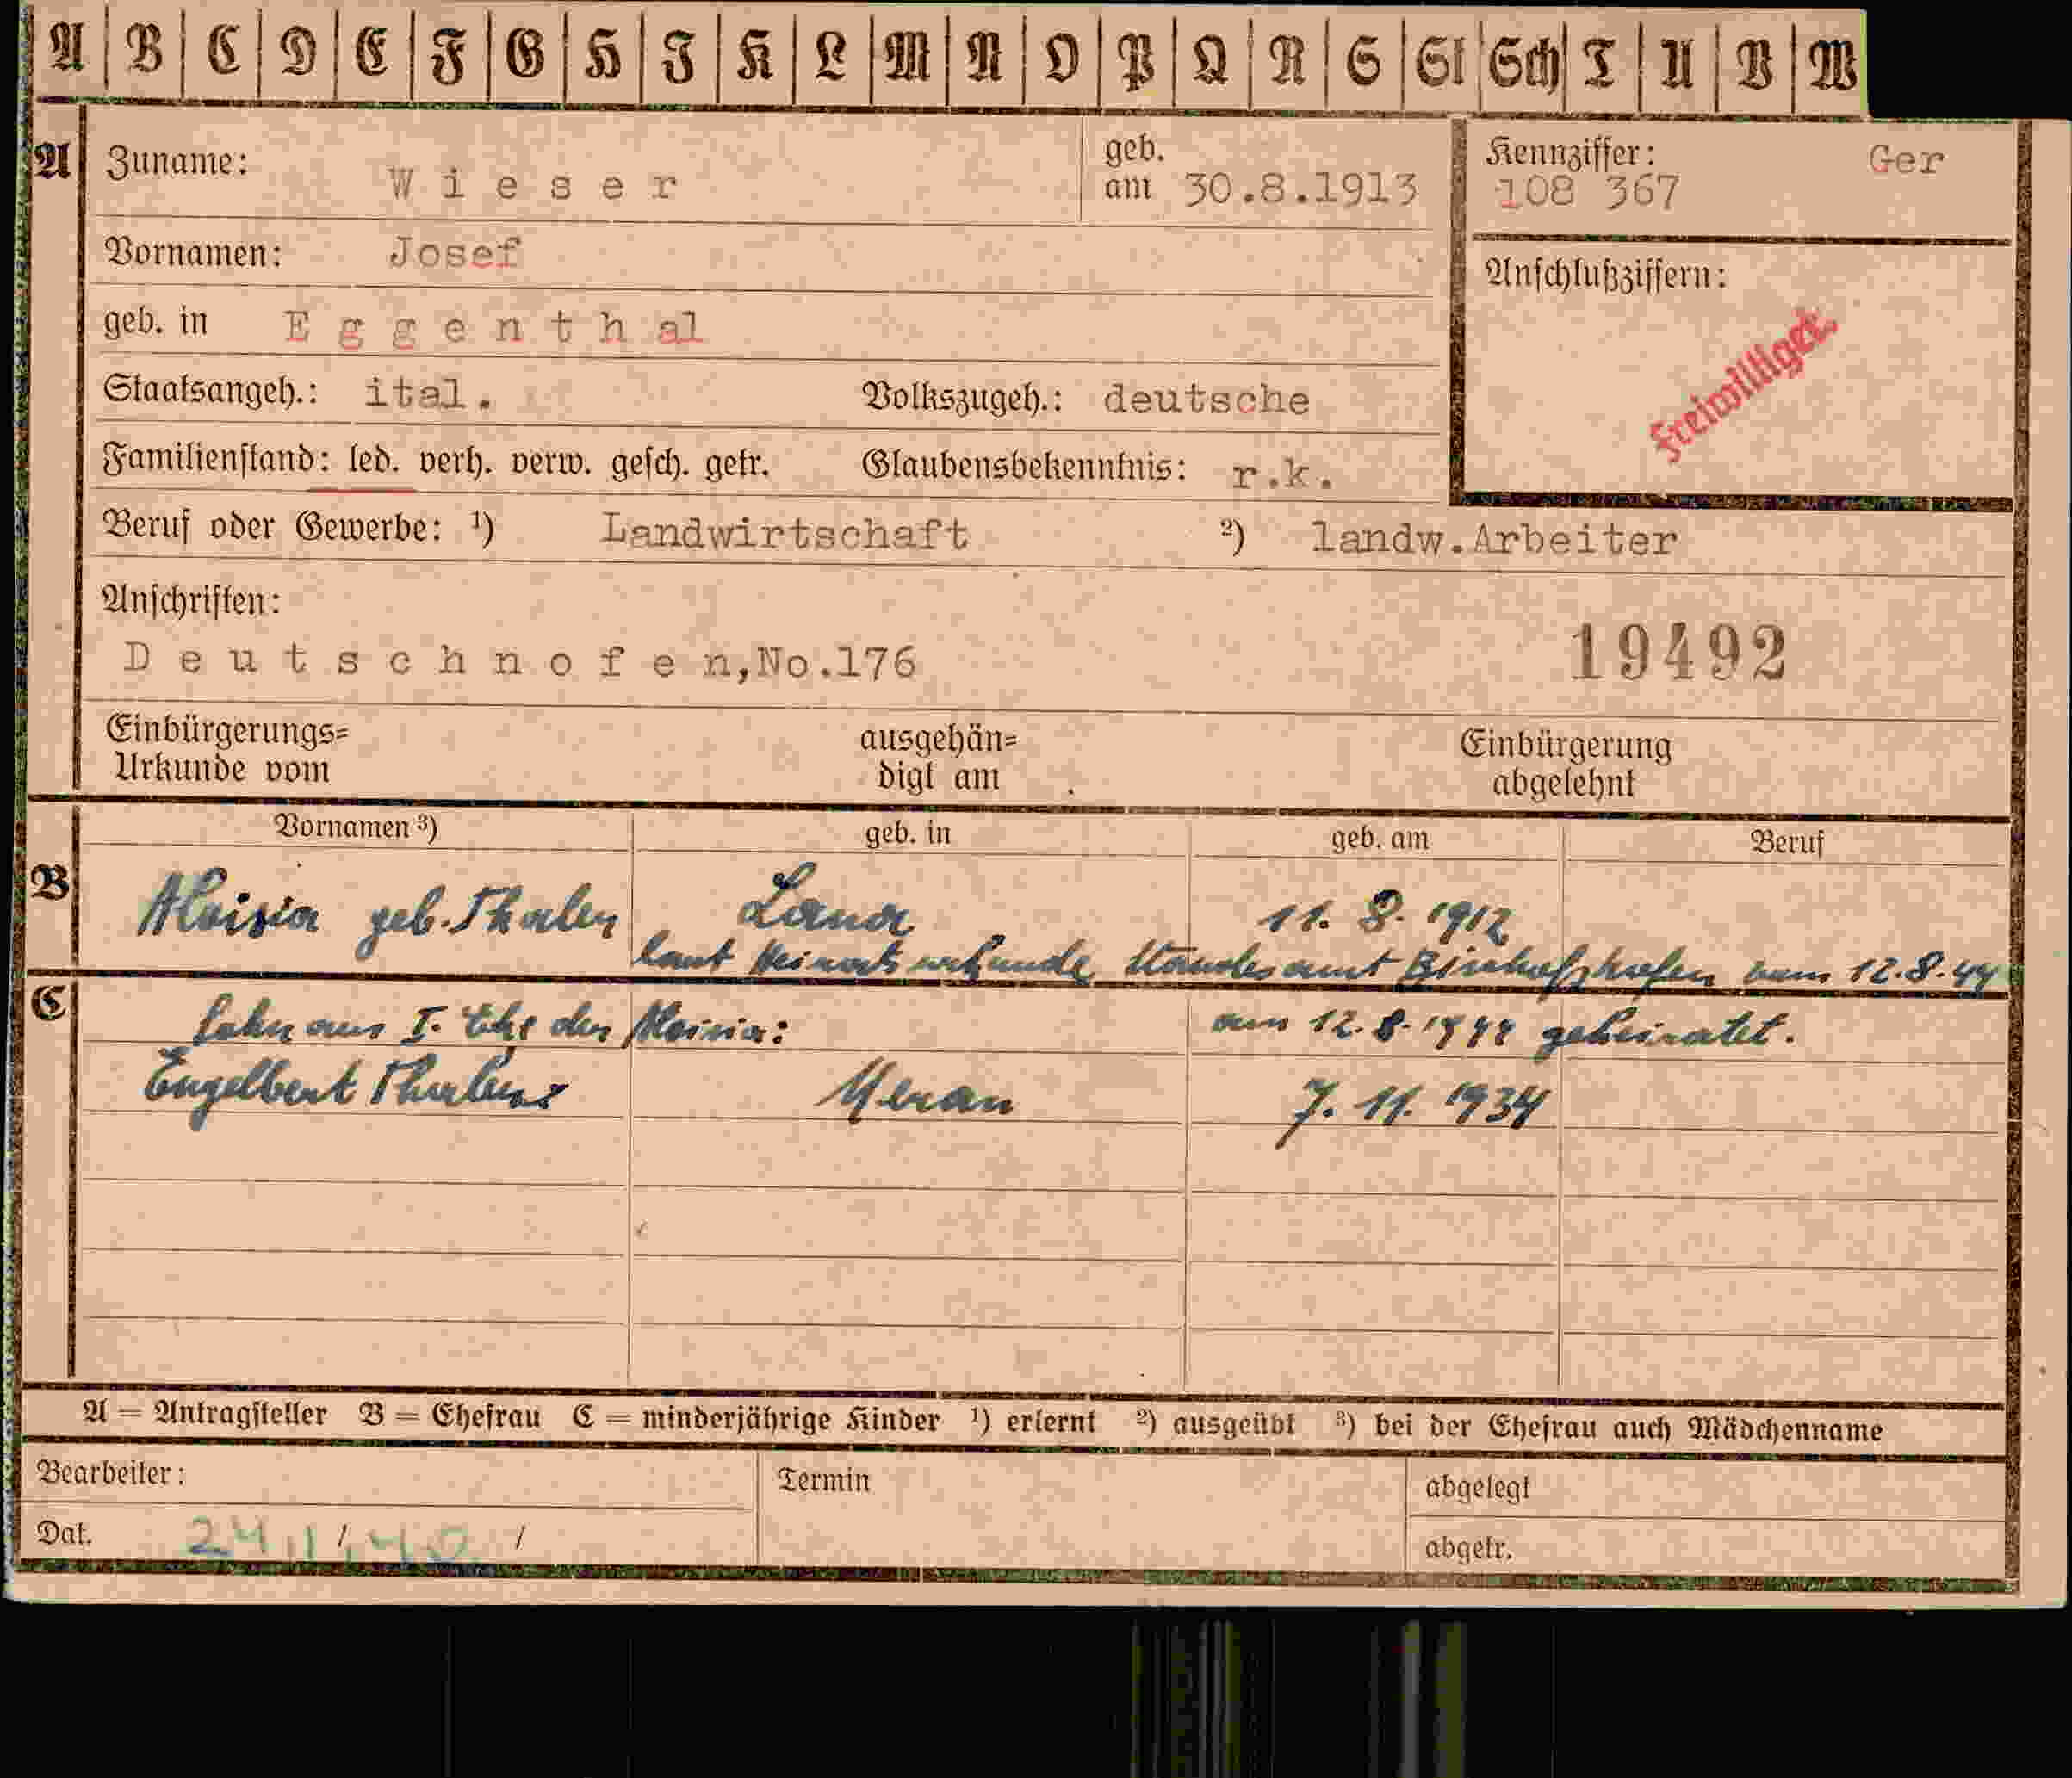 A B C D E F G H I K L M N O P Q R S St Sch T U V W
A Zuname: Wieser geb. am 30.8.1913 Kennziffer: Ger
108 367
Vornamen: Josef
Anschlußziffern:
geb. in Eggenthal
Freiwilliget.
Staatsangeh.: ital. Volkszugeh.: deutsche
Familienstand: led. verh. verw. gesch. getr. Glaubensbekenntnis: r.k.
Beruf oder Gewerbe: ¹) Landwirtschaft ²) landw.Arbeiter
Anschriften:
Deutschnofen,No.176 19492
Einbürgerungs= ausgehän= Einbürgerung
Urkunde vom digt am abgelehnt
Vornamen ³) geb. in geb. am Beruf
B Aloisia geb. Thaler Lana 11. 8. 1912
laut Heiratsurkunde Standesamt Bischofshofen vom 12.8.44
C Sohn aus I. Ehe der Aloisia: am 12.8.1944 geheiratet.
Engelbert Meran 7. 11. 1934
A = Antragsteller B = Ehefrau C = minderjährige Kinder ¹) erlernt ²) ausgeübt ³) bei der Ehefrau auch Mädchenname
Bearbeiter: Termin abgelegt
Dat. 24./1.40 / abgetr.